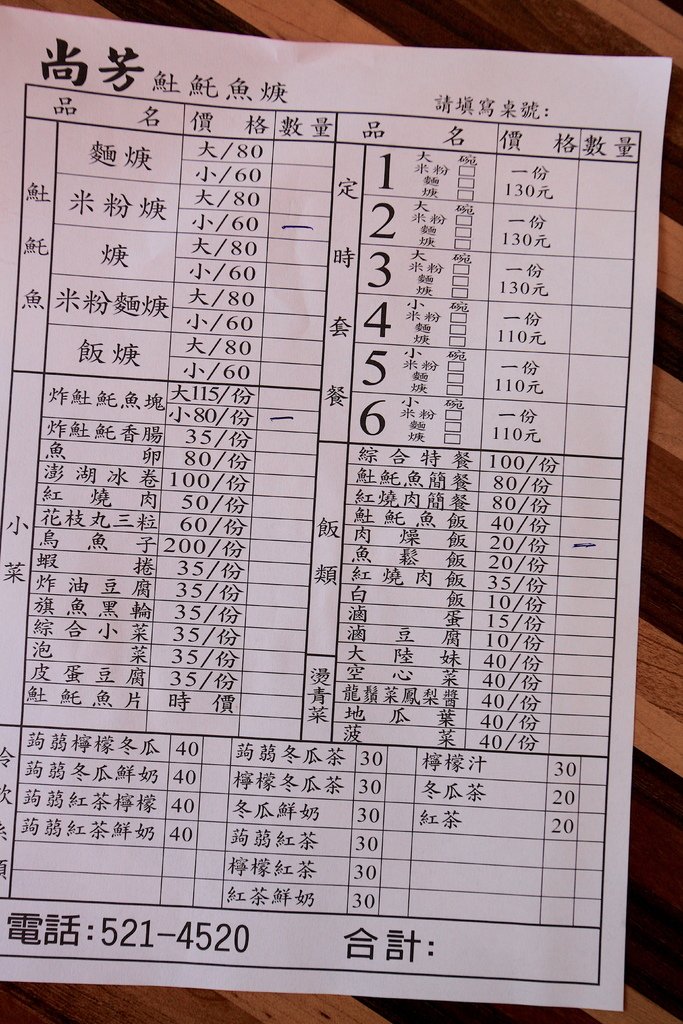 尚芳 𩵚魠魚焿
請填寫桌號:
品名 價格 數量 品名 價格 數量
麵焿 大/80
小/60
米粉焿 大/80
小/60 一
焿 大/80
小/60
米粉麵焿 大/80
小/60
飯焿 大/80
小/60
定時套餐
1 大碗 米粉 麵 焿 一份 130元
2 大碗 米粉 麵 焿 一份 130元
3 大碗 米粉 麵 焿 一份 130元
4 小碗 米粉 麵 焿 一份 110元
5 小碗 米粉 麵 焿 一份 110元
6 小碗 米粉 麵 焿 一份 110元
小菜
炸𩵚魠魚塊 大115/份
小80/份 一
炸𩵚魠香腸 35/份
魚卵 80/份
澎湖冰卷 100/份
紅燒肉 50/份
花枝丸三粒 60/份
烏魚子 200/份
蝦捲 35/份
炸油豆腐 35/份
旗魚黑輪 35/份
綜合小菜 35/份
泡菜 35/份
皮蛋豆腐 35/份
𩵚魠魚片 時價
飯類
綜合特餐 100/份
𩵚魠魚簡餐 80/份
紅燒肉簡餐 80/份
𩵚魠魚飯 40/份
肉燥飯 20/份 一
魚鬆飯 20/份
紅燒肉飯 35/份
白飯 10/份
滷蛋 15/份
滷豆腐 10/份
燙青菜
大陸妹 40/份
空心菜 40/份
龍鬚菜鳳梨醬 40/份
地瓜葉 40/份
菠菜 40/份
蒟蒻檸檬冬瓜 40
蒟蒻冬瓜鮮奶 40
蒟蒻紅茶檸檬 40
蒟蒻紅茶鮮奶 40
蒟蒻冬瓜茶 30
檸檬冬瓜茶 30
冬瓜鮮奶 30
蒟蒻紅茶 30
檸檬紅茶 30
紅茶鮮奶 30
檸檬汁 30
冬瓜茶 20
紅茶 20
電話:521-4520
合計: